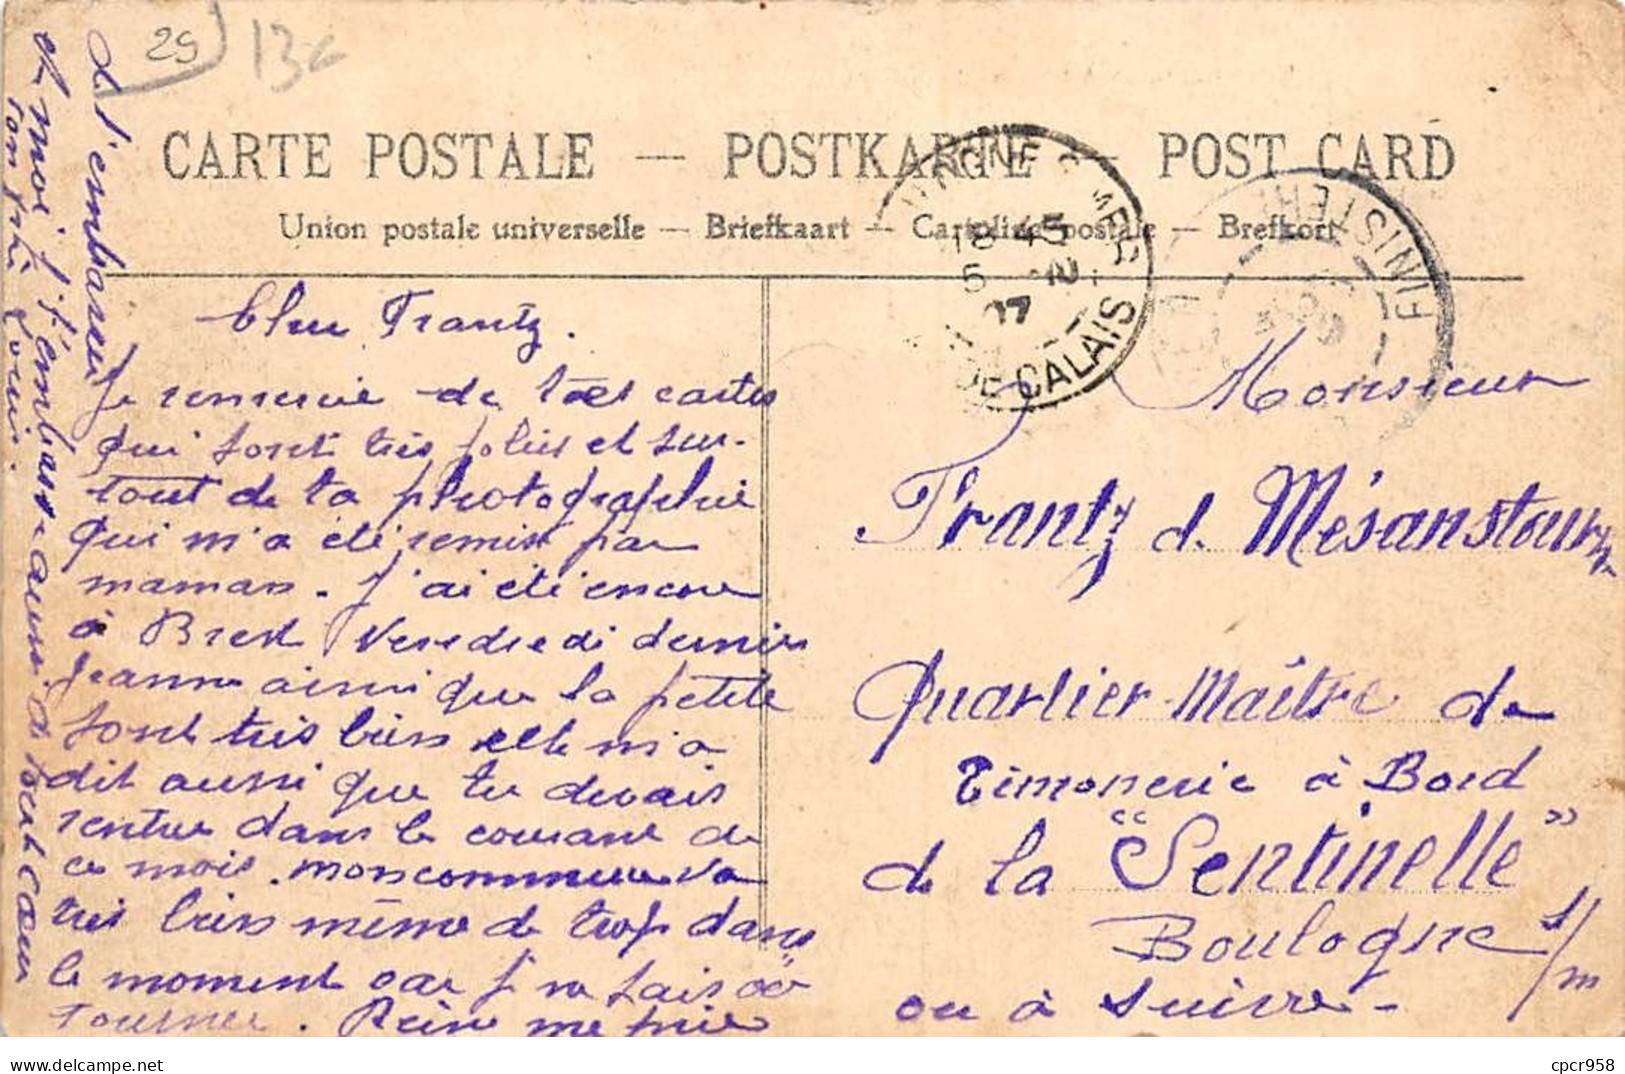 29
13€
CARTE POSTALE — POSTKARTE — POST CARD
Union postale universelle — Briefkaart — Cartolina postale — Brefkort
BOULOGNE S. MER
18 45
5 -10
07
PAS DE CALAIS
FINISTERE
Cher Frantz.
Je remercie de tes cartes
qui sont très jolies et sur-
tout de ta photographie
qui m'a été remise par
maman. J'ai été encore
à Brest Vendredi dernier
Jeanne ainsi que la petite
sont très bien elle m'a
dit aussi que tu devais
rentrer dans le courant de
ce mois. mon commerce va
très bien même de trop dans
le moment car je ne sais où
tourner. Reine me prie
de t'embrasser
et moi je t'embrasse aussi de tout cœur
ton frère Louis.
Monsieur
Frantz de Mésanstourm
Quartier-Maître de
Timonerie à Bord
de la "Sentinelle"
Boulogne s/m
ou à suivre-
cpcr958